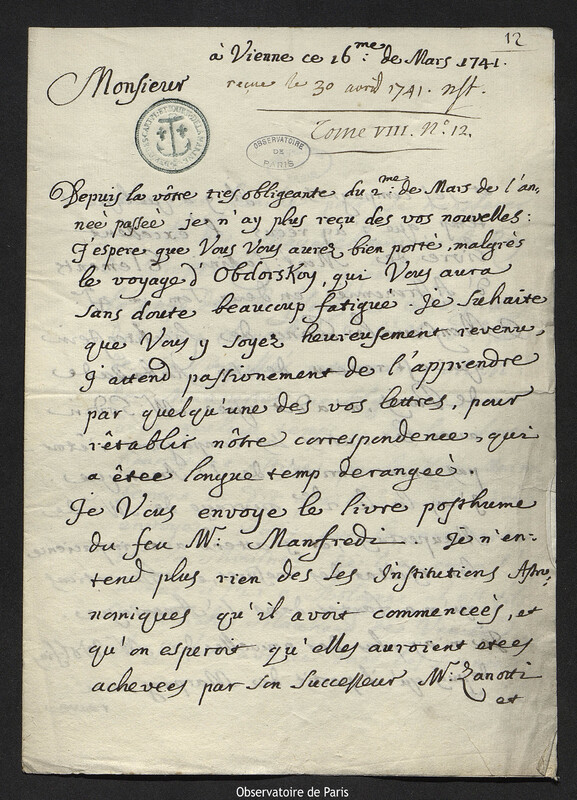 12
à Vienne ce 16.me de Mars 1741.
Monsieur
reçue le 30 avril 1741. nst.
Tome VIII. N.º 12.
OBSERVATOIRE
DE
PARIS
Depuis la vôtre tres obligeante du 2.me de Mars de l'an-
neé passeé je n'ay plus reçu des vos nouvelles:
J'espere que Vous Vous aurez bien porté, malgrès
le voyage d Obdorskoy, qui Vous aura
sans doute beaucoup fatigué. Je suhaite
que Vous y soyez heureusement revenu,
J'attend passionement de l'apprendre
par quelqu'une des vos lettres, pour
rêtablir nôtre correspondence, qui
a êtee longue temp derangeé.
Je Vous envoye le livre posthume
du feu Mr. Manfredi. Je n'en-
tend plus rien des ses Institutions Astro-
nomiques qu'il avoit commenceés, et
qu'on esperoit qu'elles auroient eteés
acheveés par son Successeur Mr. Zanotti
et
Observatoire de Paris